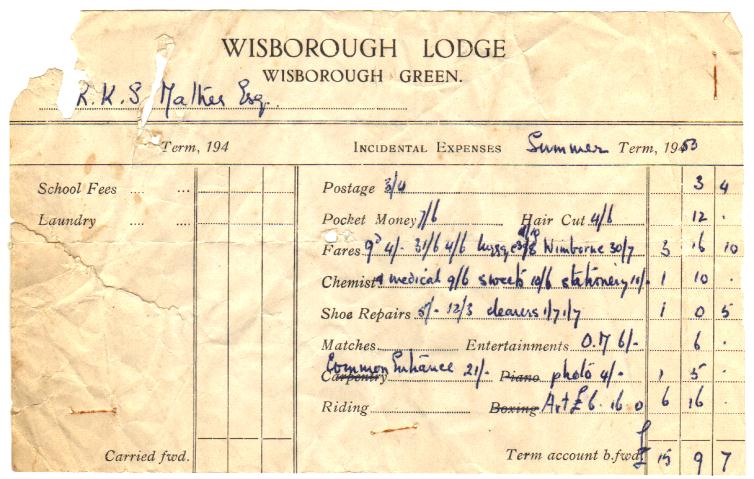 WISBOROUGH LODGE
WISBOROUGH GREEN.
R. K. S. Mather Esq.
Term, 194 INCIDENTAL EXPENSES Summer Term, 1953
School Fees .... ... Postage 3/4 3 4
Laundry .... ... Pocket Money 7/6 Hair Cut 4/6 12 .
Fares 9d 4/- 31/6 4/6 Wimborne 30/7 3 16 10
Chemist & medical 9/6 sweets 10/6 stationery 10/- 1 10 .
Shoe Repairs 5/- 12/3 cleaners 1/7 1/7 1 0 5
Matches Entertainments O.M 6/- 6 .
Common Entrance 21/-
Carpentry Piano photo 4/- 1 5 .
Riding Boxing Art £6. 16. 0 6 16 .
Carried fwd. Term account b.fwd. £ 15 9 7